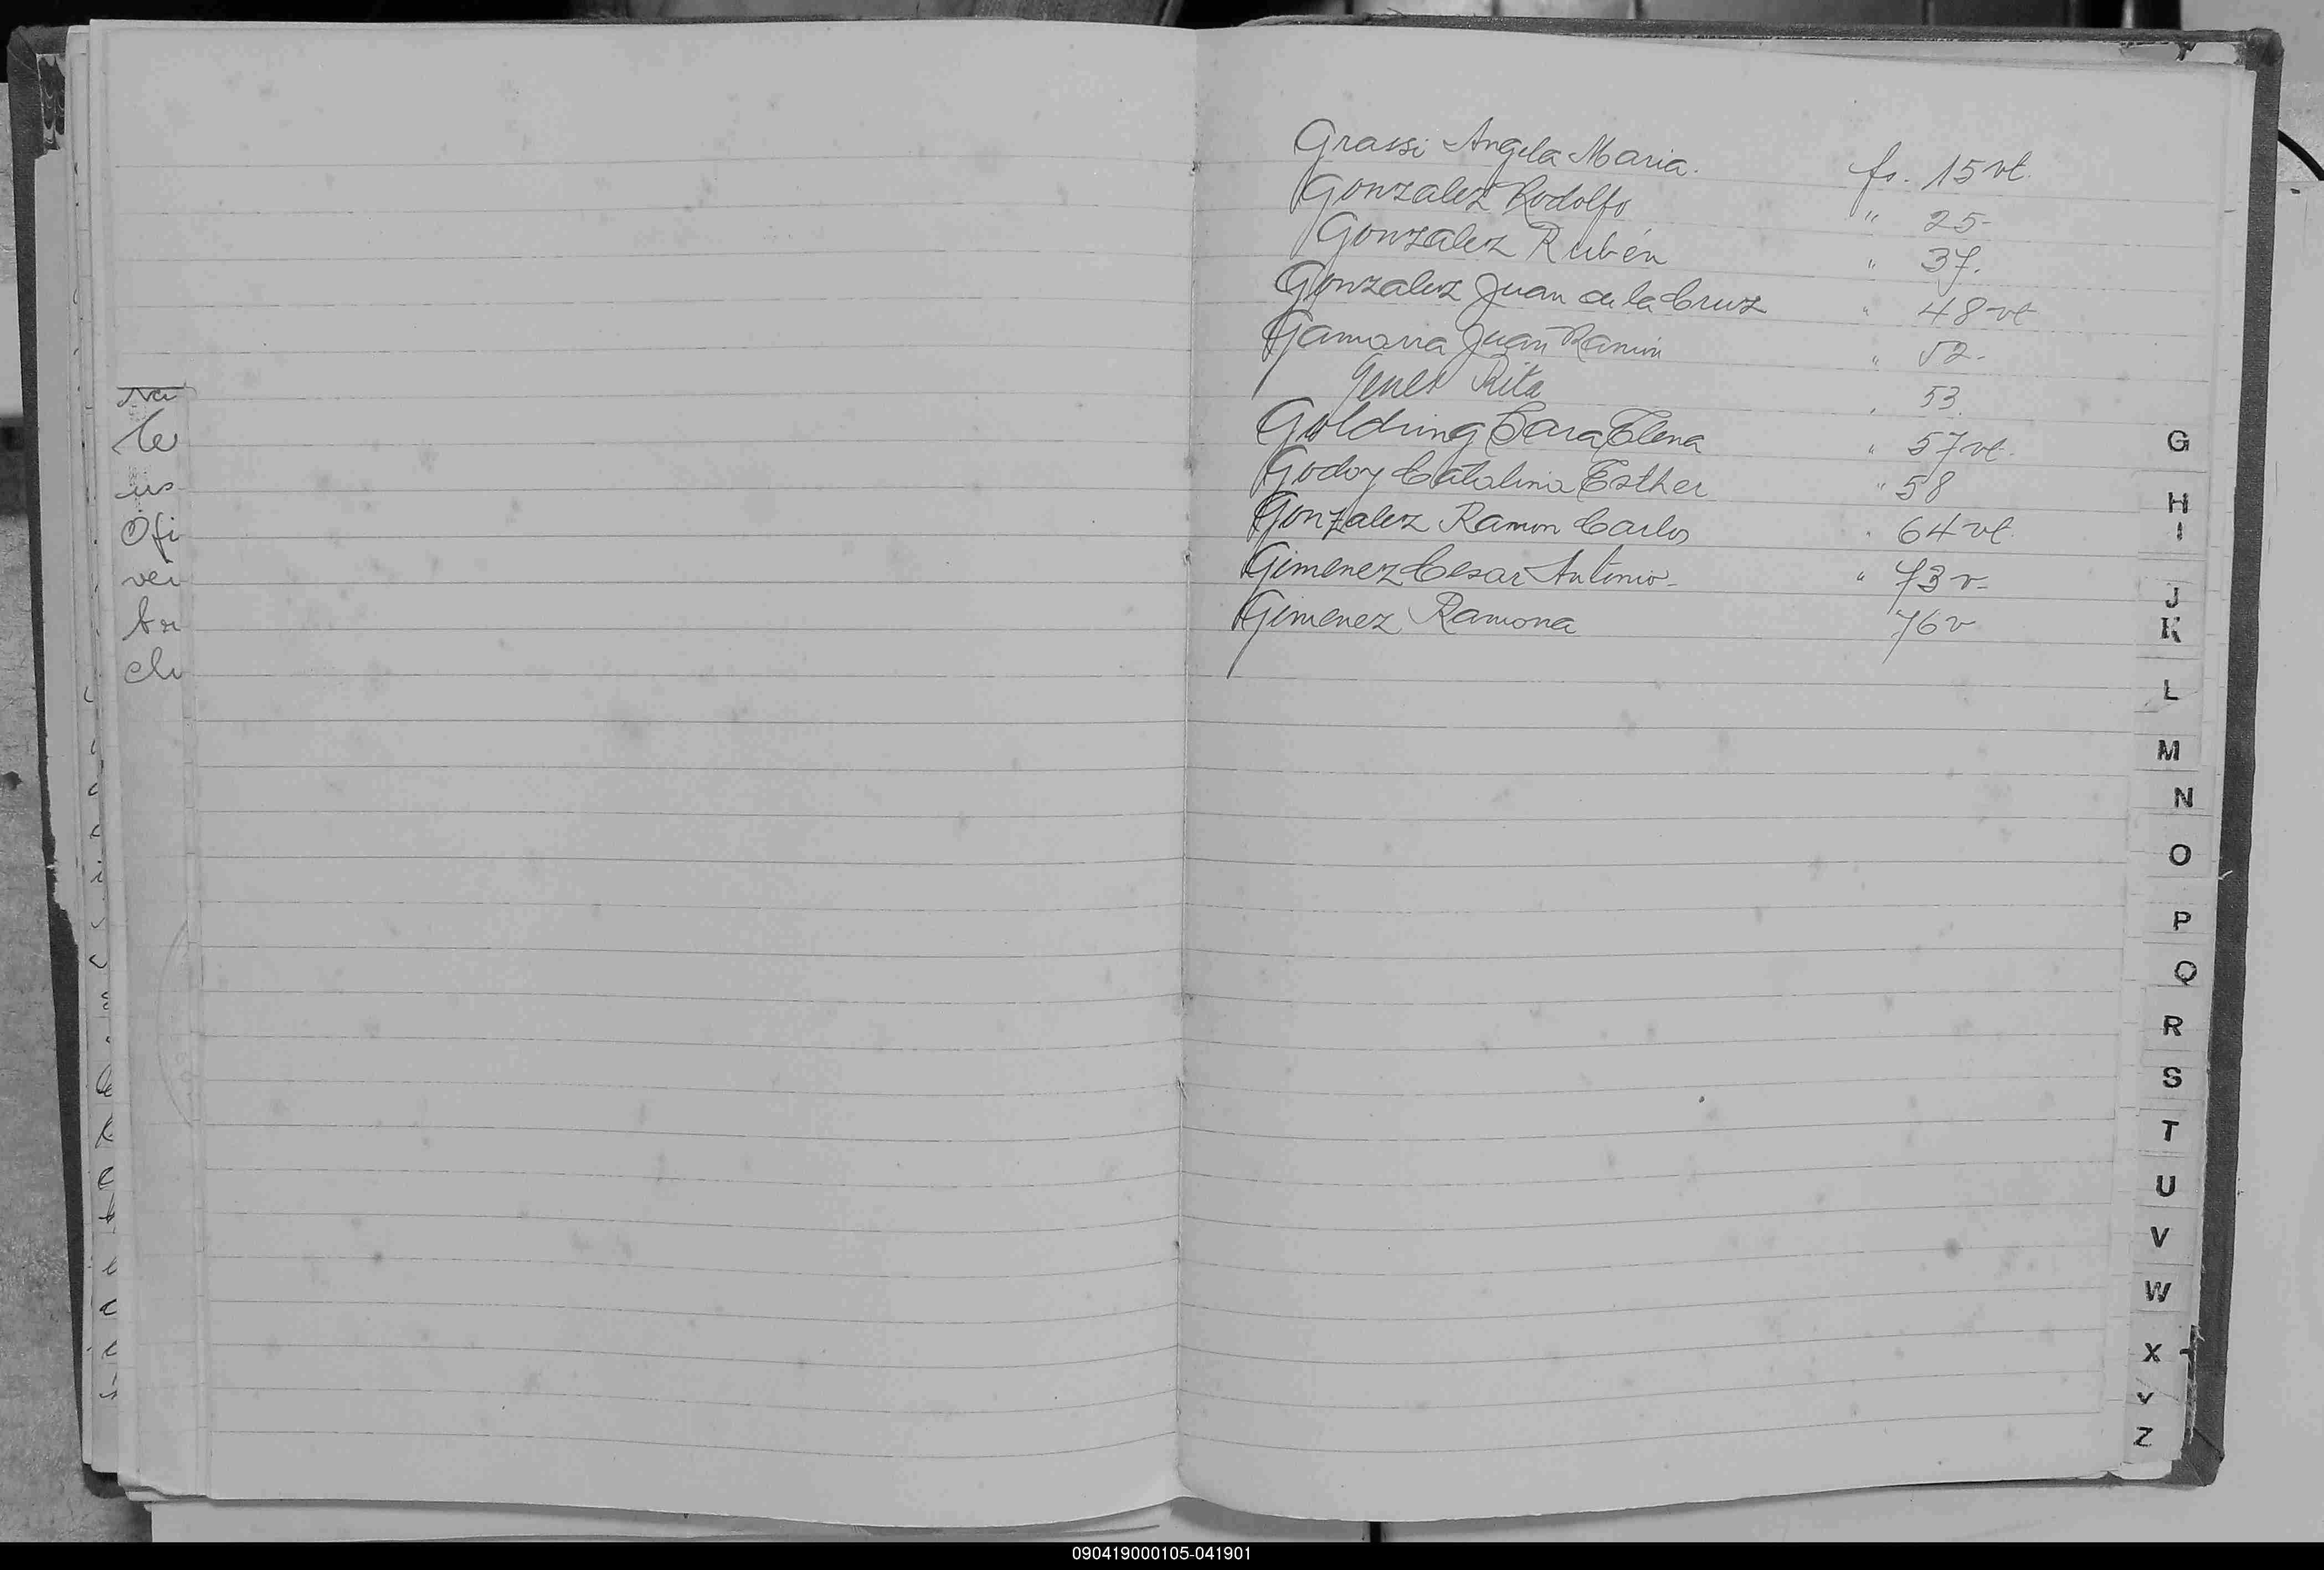 Grassi Angela Maria. fs. 15 vt.
Gonzalez Rodolfo " 25-
Gonzalez Rubén " 37.
Gonzalez Juan de la Cruz " 48 vt
Gamarra Juan Ramón " 52.
Genes Rita " 53.
Goldring Sara Elena " 57 vt.
Godoy Catalina Esther " 58
Gonzalez Ramon Carlos " 64 vt.
Gimenez Cesar Antonio- " 73 v-
Gimenez Ramona 76 v
Ofi
vei
G
H
I
J
K
L
M
N
O
P
Q
R
S
T
U
V
W
X
Y
Z
090419000105-041901